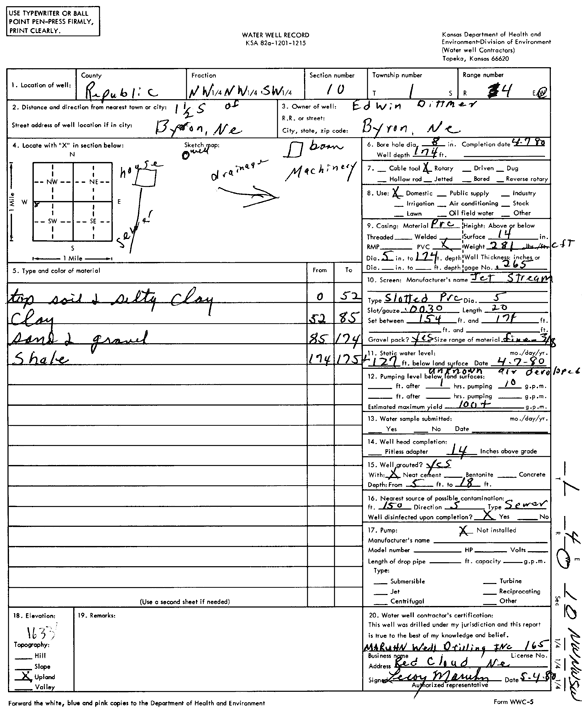 USE TYPEWRITER OR BALL
POINT PEN-PRESS FIRMLY,
PRINT CLEARLY.
WATER WELL RECORD
KSA 82a-1201-1215
Kansas Department of Health and
Environment-Division of Environment
(Water well Contractors)
Topeka, Kansas 66620
1. Location of well: County Republic Fraction NW 1/4 NW 1/4 SW 1/4 Section number 10 Township number T 1 S Range number R 4 E/W
2. Distance and direction from nearest town or city: 1 1/2 S of
Street address of well location if in city: Byron, Ne
3. Owner of well: Edwin Dittmer
R.R. or street:
City, state, zip code: Byron, Ne
4. Locate with "X" in section below:
N
NW NE
W E
SW SE
S
1 Mile
1 Mile
Sketch map:
well
house
sewer
drainage
barn
Machinery
6. Bore hole dia. 8 in. Completion date 4-7-80
Well depth 174 ft.
7. Cable tool X Rotary Driven Dug
Hollow rod Jetted Bored Reverse rotary
8. Use: X Domestic Public supply Industry
Irrigation Air conditioning Stock
Lawn Oil field water Other
9. Casing: Material PVC Height: Above or below
Threaded Welded Surface 14 in.
RMP PVC X Weight 281 lbs./ft. CFT
Dia. 5 in. to 174 ft. depth Wall Thickness: inches or
Dia. in. to ft. depth gage No. .265
5. Type and color of material From To
top soil & silty clay 0 52
Clay 52 85
sand & gravel 85 174
Shale 174 175
(Use a second sheet if needed)
10. Screen: Manufacturer's name Jet Stream
Type Slotted PVC Dia. 5
Slot/gauze .0030 Length 20
Set between 154 ft. and 174 ft.
ft. and ft.
Gravel pack? yes Size range of material fines 3/8
11. Static water level: mo./day/yr.
+127 ft. below land surface Date 4-7-80
12. Pumping level below land surfaces: unknown air developed
ft. after 1 hrs. pumping 10 g.p.m.
ft. after hrs. pumping g.p.m.
Estimated maximum yield 100+ g.p.m.
13. Water sample submitted: mo./day/yr.
Yes No Date
14. Well head completion:
Pitless adapter 14 Inches above grade
15. Well grouted? yes
With: X Neat cement Bentonite Concrete
Depth: From 5 ft. to 18 ft.
16. Nearest source of possible contamination:
ft. 150 Direction S Type Sewer
Well disinfected upon completion? X Yes No
17. Pump: X Not installed
Manufacturer's name
Model number HP Volts
Length of drop pipe ft. capacity g.p.m.
Type:
Submersible Turbine
Jet Reciprocating
Centrifugal Other
18. Elevation:
1633
Topography:
Hill
Slope
X Upland
Valley
19. Remarks:
20. Water well contractor's certification:
This well was drilled under my jurisdiction and this report
is true to the best of my knowledge and belief.
MARUHN Well Drilling INC 165
Business name License No.
Address Red Cloud, Ne
Signed Leroy Maruhn 5-4-80
Authorized representative
Forward the white, blue and pink copies to the Department of Health and Environment
Form WWC-5